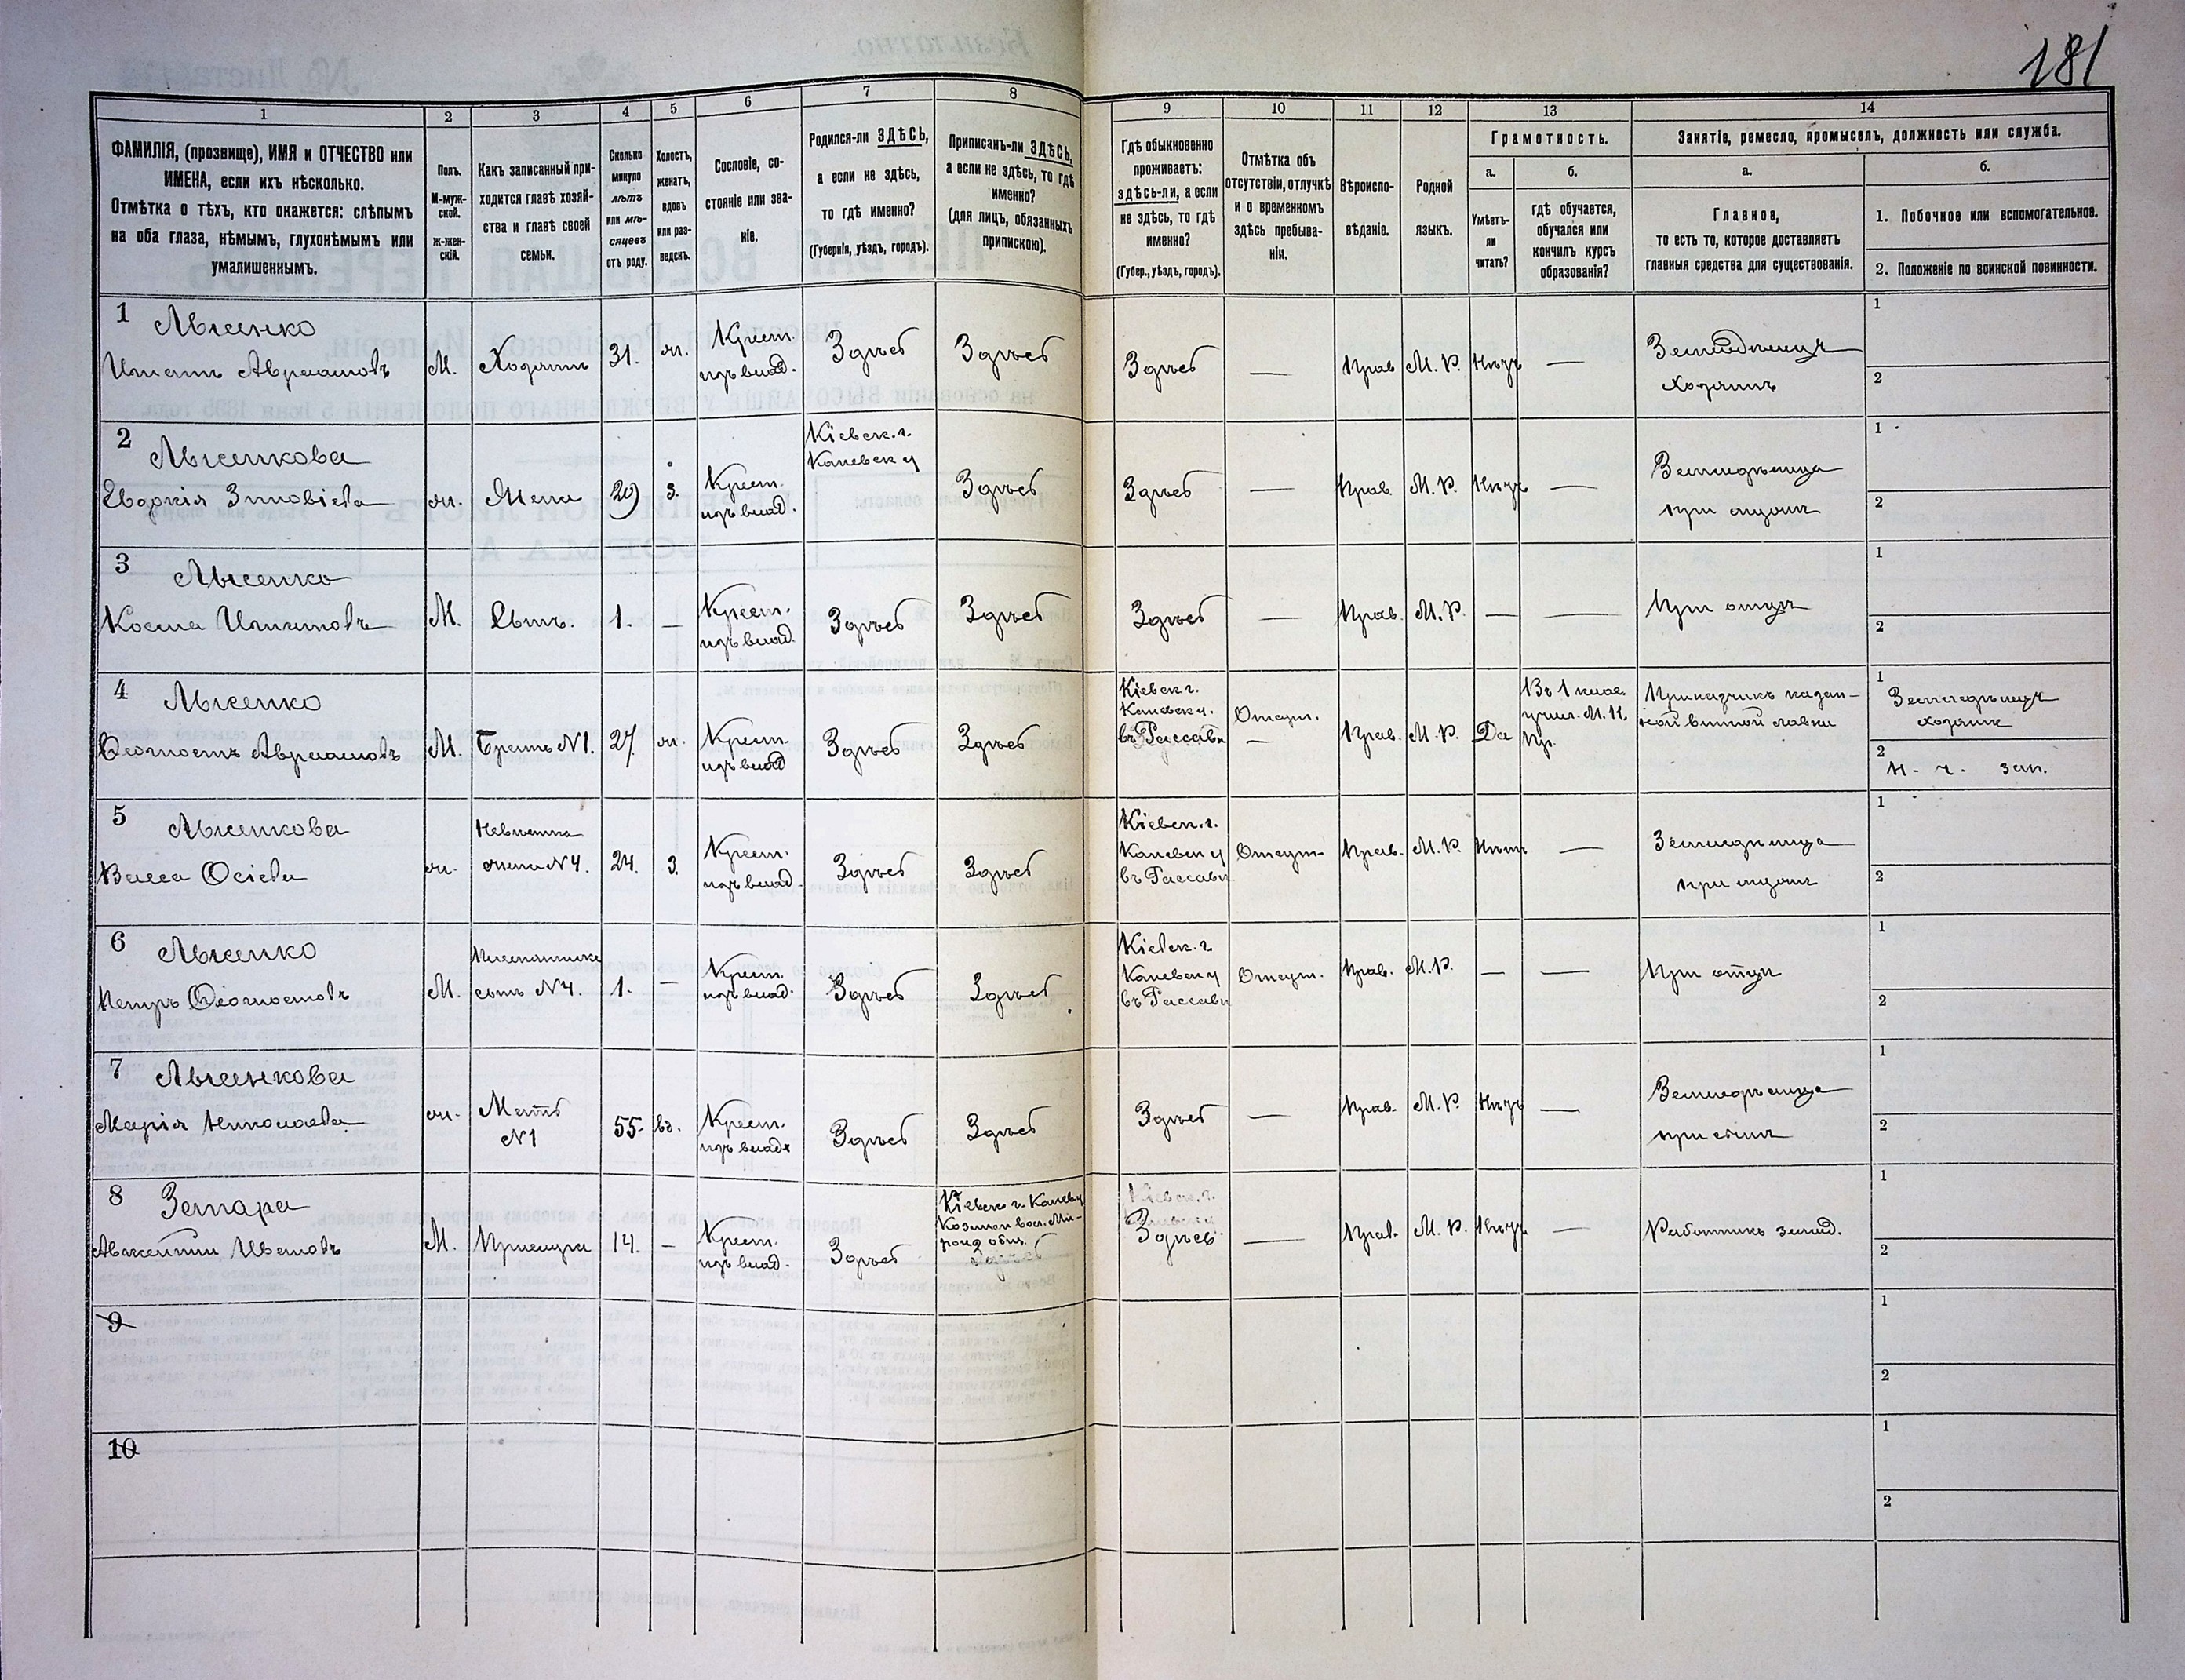 181
1 2 3 4 5 6 7 8 9 10 11 12 13 14
ФАМИЛІЯ, (прозвище), ИМЯ и ОТЧЕСТВО или
ИМЕНА, если ихъ нѣсколько.
Отмѣтка о тѣхъ, кто окажется: слѣпымъ
на оба глаза, нѣмымъ, глухонѣмымъ или
умалишеннымъ.
Полъ.
М-муж-
ской.
ж-жен-
скій.
Какъ записанный при-
ходится главѣ хозяй-
ства и главѣ своей
семьи.
Сколько
минуло
лѣтъ
или мѣ-
сяцевъ
отъ роду.
Холостъ,
женатъ,
вдовъ
или раз-
веденъ.
Сословіе, со-
стояніе или зва-
ніе.
Родился-ли ЗДѢСЬ,
а если не здѣсь,
то гдѣ именно?
(Губернія, уѣздъ, городъ).
Приписанъ-ли ЗДѢСЬ,
а если не здѣсь, то гдѣ
именно?
(для лицъ, обязанныхъ
припискою).
Гдѣ обыкновенно
проживаетъ:
здѣсь-ли, а если
не здѣсь, то гдѣ
именно?
(Губер., уѣздъ, городъ).
Отмѣтка объ
отсутствіи, отлучкѣ
и о временномъ
здѣсь пребыва-
ніи.
Вѣроиспо-
вѣданіе.
Родной
языкъ.
Грамотность.
а.
Умѣетъ-
ли
читать?
б.
гдѣ обучается,
обучался или
кончилъ курсъ
образованія?
Занятіе, ремесло, промыселъ, должность или служба.
а.
Главное,
то есть то, которое доставляетъ
главныя средства для существованія.
б.
1. Побочное или вспомогательное.
2. Положеніе по воинской повинности.
1 Лысенко
Игнатъ Авраамовъ
М.
Хозяинъ
31.
ж.
Крест.
изъ влад.
Здѣсь
Здѣсь
Здѣсь
—
Прав
М. Р.
Нѣтъ
—
Земледѣлецъ
хозяинъ
1
2
2 Лысенкова
Евдокія Зиновіева
ж.
Жена
29
з.
Крест.
изъ влад.
Кіевск. г.
Каневск у
Здѣсь
Здѣсь
—
Прав.
М. Р.
Нѣтъ
—
Земледѣлица
при мужѣ
1
2
3 Лысенко
Косма Игнатовъ
М.
Сынъ.
1.
—
Крест.
изъ влад.
Здѣсь
Здѣсь
Здѣсь
—
Прав.
М. Р.
—
—
При отцѣ
1
2
4 Лысенко
Ѳеогностъ Авраамовъ
М.
Братъ №1.
27
ж.
Крест.
изъ влад
Здѣсь
Здѣсь
Кіевск г.
Каневск у.
въ Рассавѣ
Отсут.
—
Прав.
М. Р.
Да
Въ 1 клас.
учил. М. Н.
Пр.
Прикащикъ казен-
ной винной лавки
1 Земледѣлецъ
хозяинъ
2 н. ч. зап.
5 Лысенкова
Васса Осіева
ж.
Невѣстка
жена №4.
24.
з.
Крест.
изъ влад.
Здѣсь
Здѣсь
Кіевск. г.
Каневск у
въ Рассавѣ
Отсут
Прав.
М. Р.
Нѣтъ
—
Земледѣлица
при мужѣ
1
2
6 Лысенко
Петръ Ѳеогностовъ
М.
Племянникъ
сынъ №4.
1.
—
Крест.
изъ влад.
Здѣсь
Здѣсь
Кіевск. г.
Каневск у
въ Рассавѣ
Отсут.
Прав.
М. Р.
—
—
При отцѣ
1
2
7 Лысенкова
Марія Николаева
ж.
Мать
№1
55.
вд.
Крест.
изъ влад.
Здѣсь
Здѣсь
Здѣсь
—
Прав.
М. Р.
Нѣтъ
—
Земледѣлица
при сынѣ
1
2
8 Зетара
Авксентій Ивановъ
М.
Прислуга
14.
—
Крест.
изъ влад.
Здѣсь
Кіевск г. Канев у
Козин вол.
Здѣсь
Здѣсь
—
Прав.
М. Р.
Нѣтъ
—
Работникъ землед.
1
2
9
1
2
10
1
2